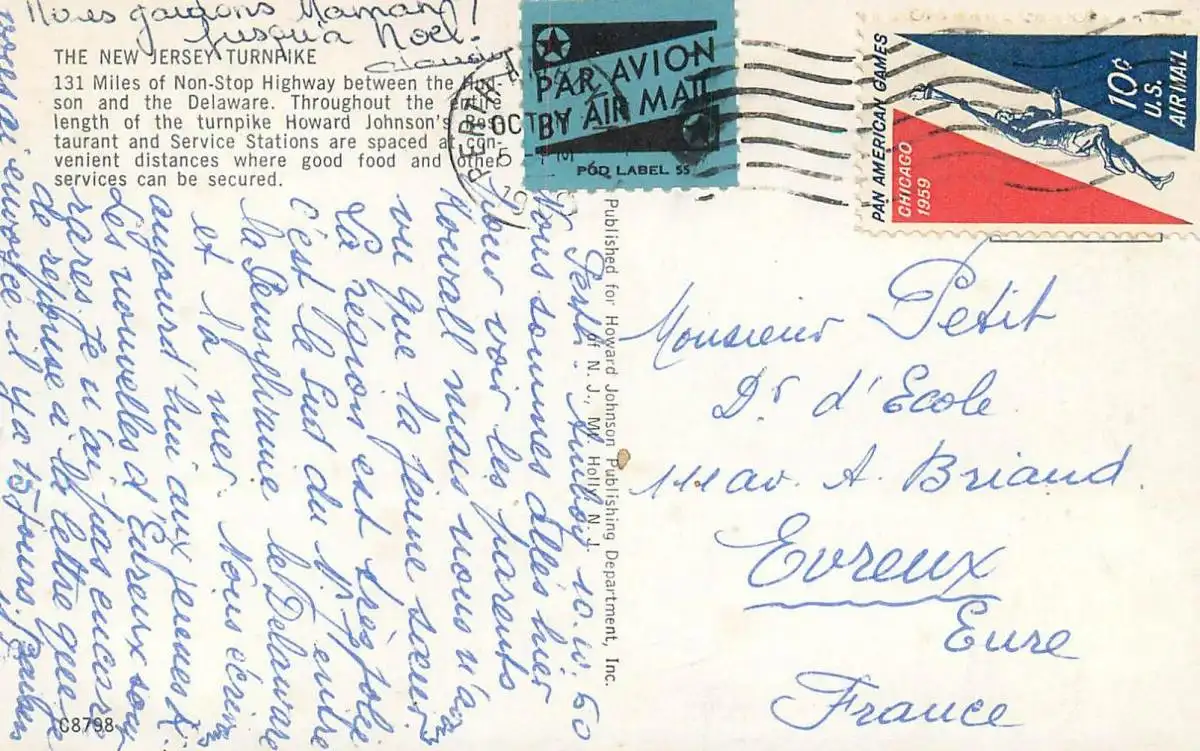 Nous gardons Maman
jusqu'à Noël.
THE NEW JERSEY TURNPIKE
131 Miles of Non-Stop Highway between the
son and the Delaware. Throughout the entire
length of the turnpike Howard Johnson's Res-
taurant and Service Stations are spaced at con-
venient distances where good food and other
services can be secured.
C8798
PAR AVION
BY AIR MAIL
POD LABEL 55
OCT
5
PAN AMERICAN GAMES
CHICAGO
1959
10¢
U.S.
AIR MAIL
Published for Howard Johnson Publishing Department, Inc.
of N. J., Mt. Holly, N. J.
Perth-Amboy 10. 60
Nous sommes allés hier
pour voir les parents
mais nous n'a
vu que la jeune soeur
La région est très jolie
C'est le Sud du N.J. entre
la Pensylvanie le Delaware
et la mer. Nous écrivons
aujourd'hui aux jeunes
Les nouvelles d'Evreux sont
rares. Tu n'as pas encore
de réponse à la lettre que je
vous ai envoyée il y a 15 jours.
Monsieur Petit
Dr d'Ecole
av. A. Briand
Evreux
Eure
France